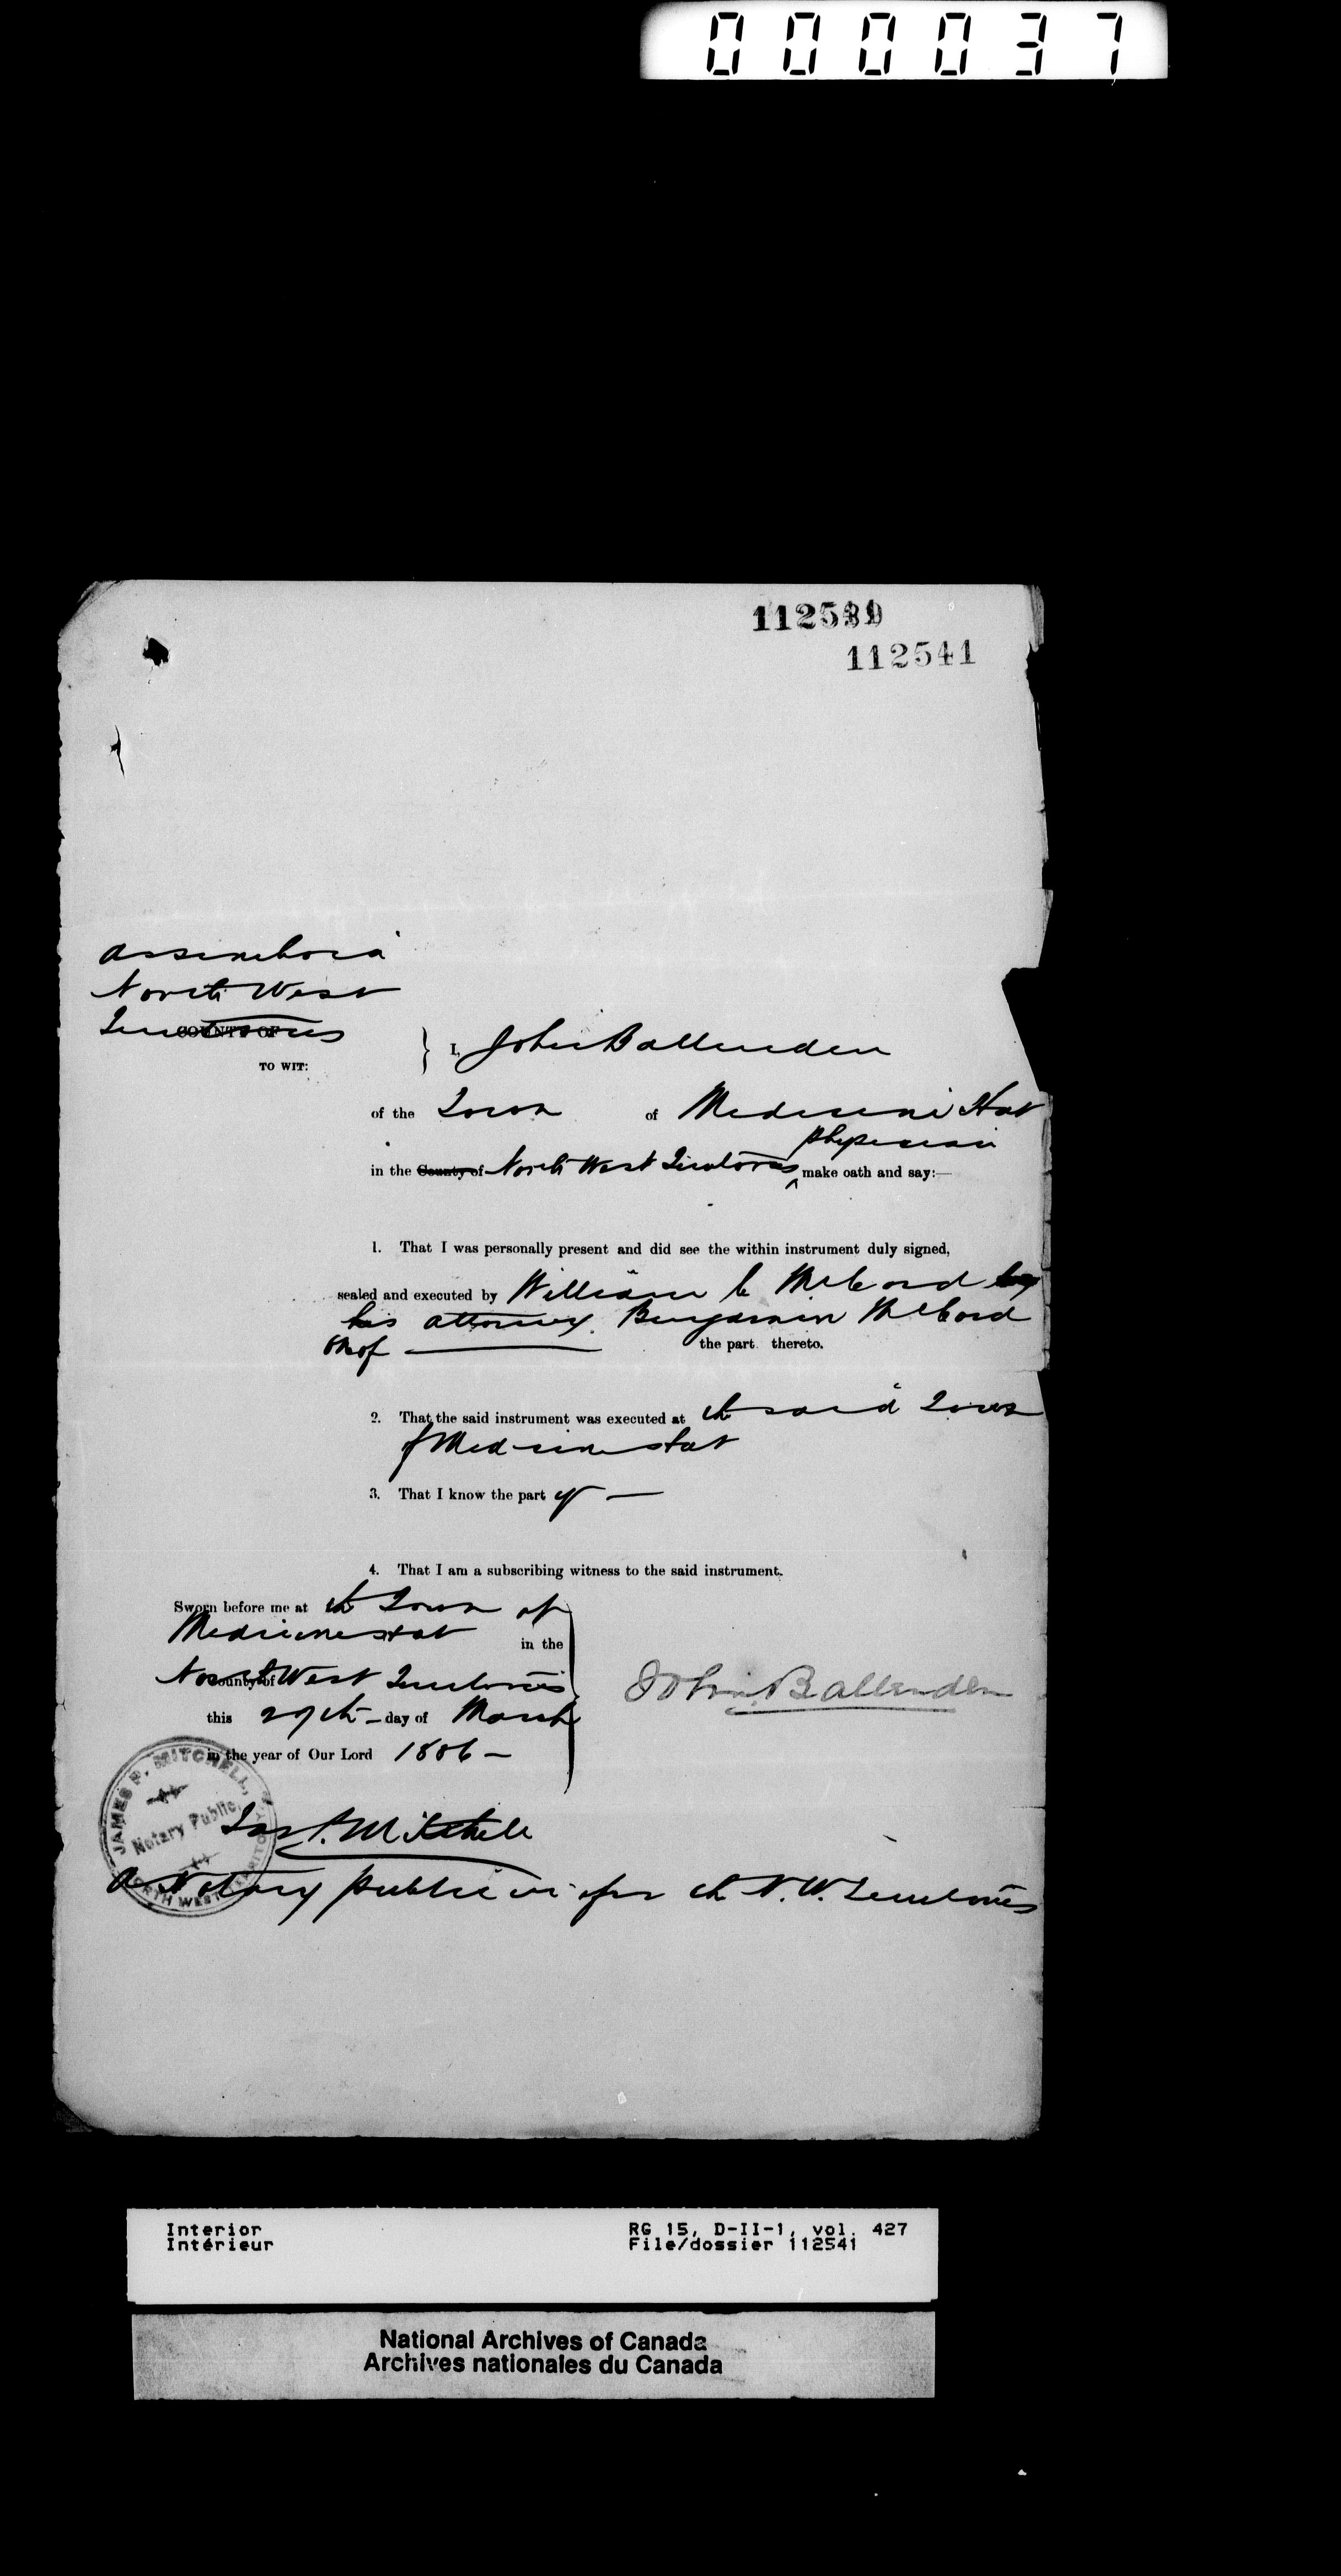 000037
112541
Assiniboia
North West
Territories
COUNTY OF
TO WIT:
I, John Ballenden
of the Town of Medicine Hat
physician
in the County of North West Territories make oath and say:—
1. That I was personally present and did see the within instrument duly signed,
sealed and executed by William C McCord by
his attorney Benjamin McCord
the part thereto.
2. That the said instrument was executed at the said Town
of Medicine Hat
3. That I know the part y —
4. That I am a subscribing witness to the said instrument.
Sworn before me at the Town of
Medicine Hat in the
County of North West Territories
this 29th day of March
in the year of Our Lord 1886 —
John Ballenden
JAMES P. MITCHELL,
Notary Public,
NORTH WEST TERRITORY
Jas P. Mitchell
A Notary public in & for the N. W. Territories
Interior RG 15, D-II-1, vol. 427
Intérieur File/dossier 112541
National Archives of Canada
Archives nationales du Canada